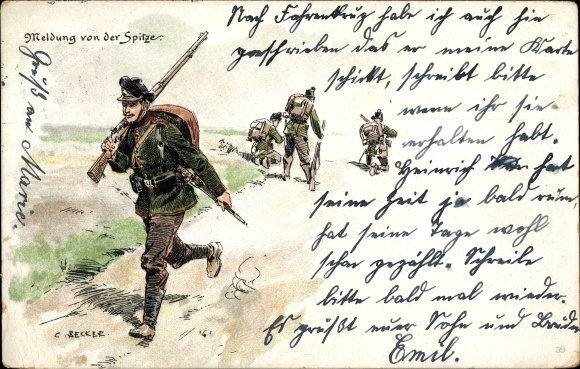 Meldung von der Spitze.
Nach Fahrenkrug habe ich auch hin
geschrieben das er meine Karte
schickt, schreibt bitte
wenn ihr sie
erhalten habt.
Heinrich hat
seine Zeit ja bald rum,
hat seine Tage wohl
schon gezählt. Schreibe
bitte bald mal wieder.
Es grüßt euer Sohn und Bruder
Emil.
Gruß an
Marie.
C. BECKER.
30